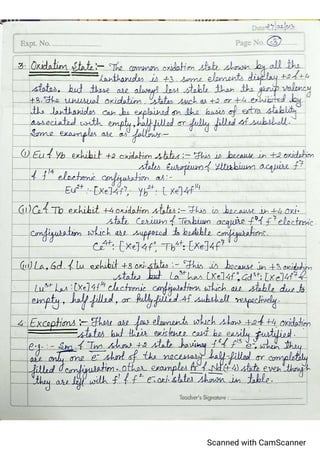 Date 27/02/23
Expt. No.
Page No. 3
3. Oxidation State :- The common oxidation state shown by all the
Lanthanides is +3. Some elements display +2 & +4
states, but these are always less stable than the group valency
+3. The unusual oxidation states such as +2 or +4 exhibited by
the lanthanides can be explained on the basis of extra stability
associated with empty, half filled or fully filled 4f subshell.
Some examples are as follows -
(i) Eu & Yb exhibit +2 oxidation states :- This is because in +2 oxidation
states Europium & Ytterbium acquire f7
& f14 electronic configuration as :-
Eu2+ :- [Xe]4f7, Yb2+ : [Xe]4f14
(ii) Ce & Tb exhibit +4 oxidation states :- This is because in +4 oxi.
state Cerium & Terbium acquire f0 & f7 electronic
configuration which are supposed to be stable configurations.
Ce4+ : [Xe]4f0, Tb4+ : [Xe]4f7
(iii) La, Gd & Lu exhibit +3 oxi. states :- This is because in +3 oxidation
states but La3+ has [Xe]4f0, Gd3+ : [Xe]4f7 &
Lu3+ has : [Xe]4f14 electronic configuration which are stable due to
empty, half filled, or fully filled 4f subshell respectively.
4. Exceptions :- There are few elements which show +2 & +4 oxidation
states but their existence can't be easily justified.
e.g :- Sm & Tm show +2 state having f6 & f13 e-, when they
are only one e- short of the necessary half-filled or completely
filled configuration. Other examples Pr & Nd (+4) state even though
they are left with f1 & f2 e-. Oxi. states shown in table.
Teacher's Signature :
Scanned with CamScanner